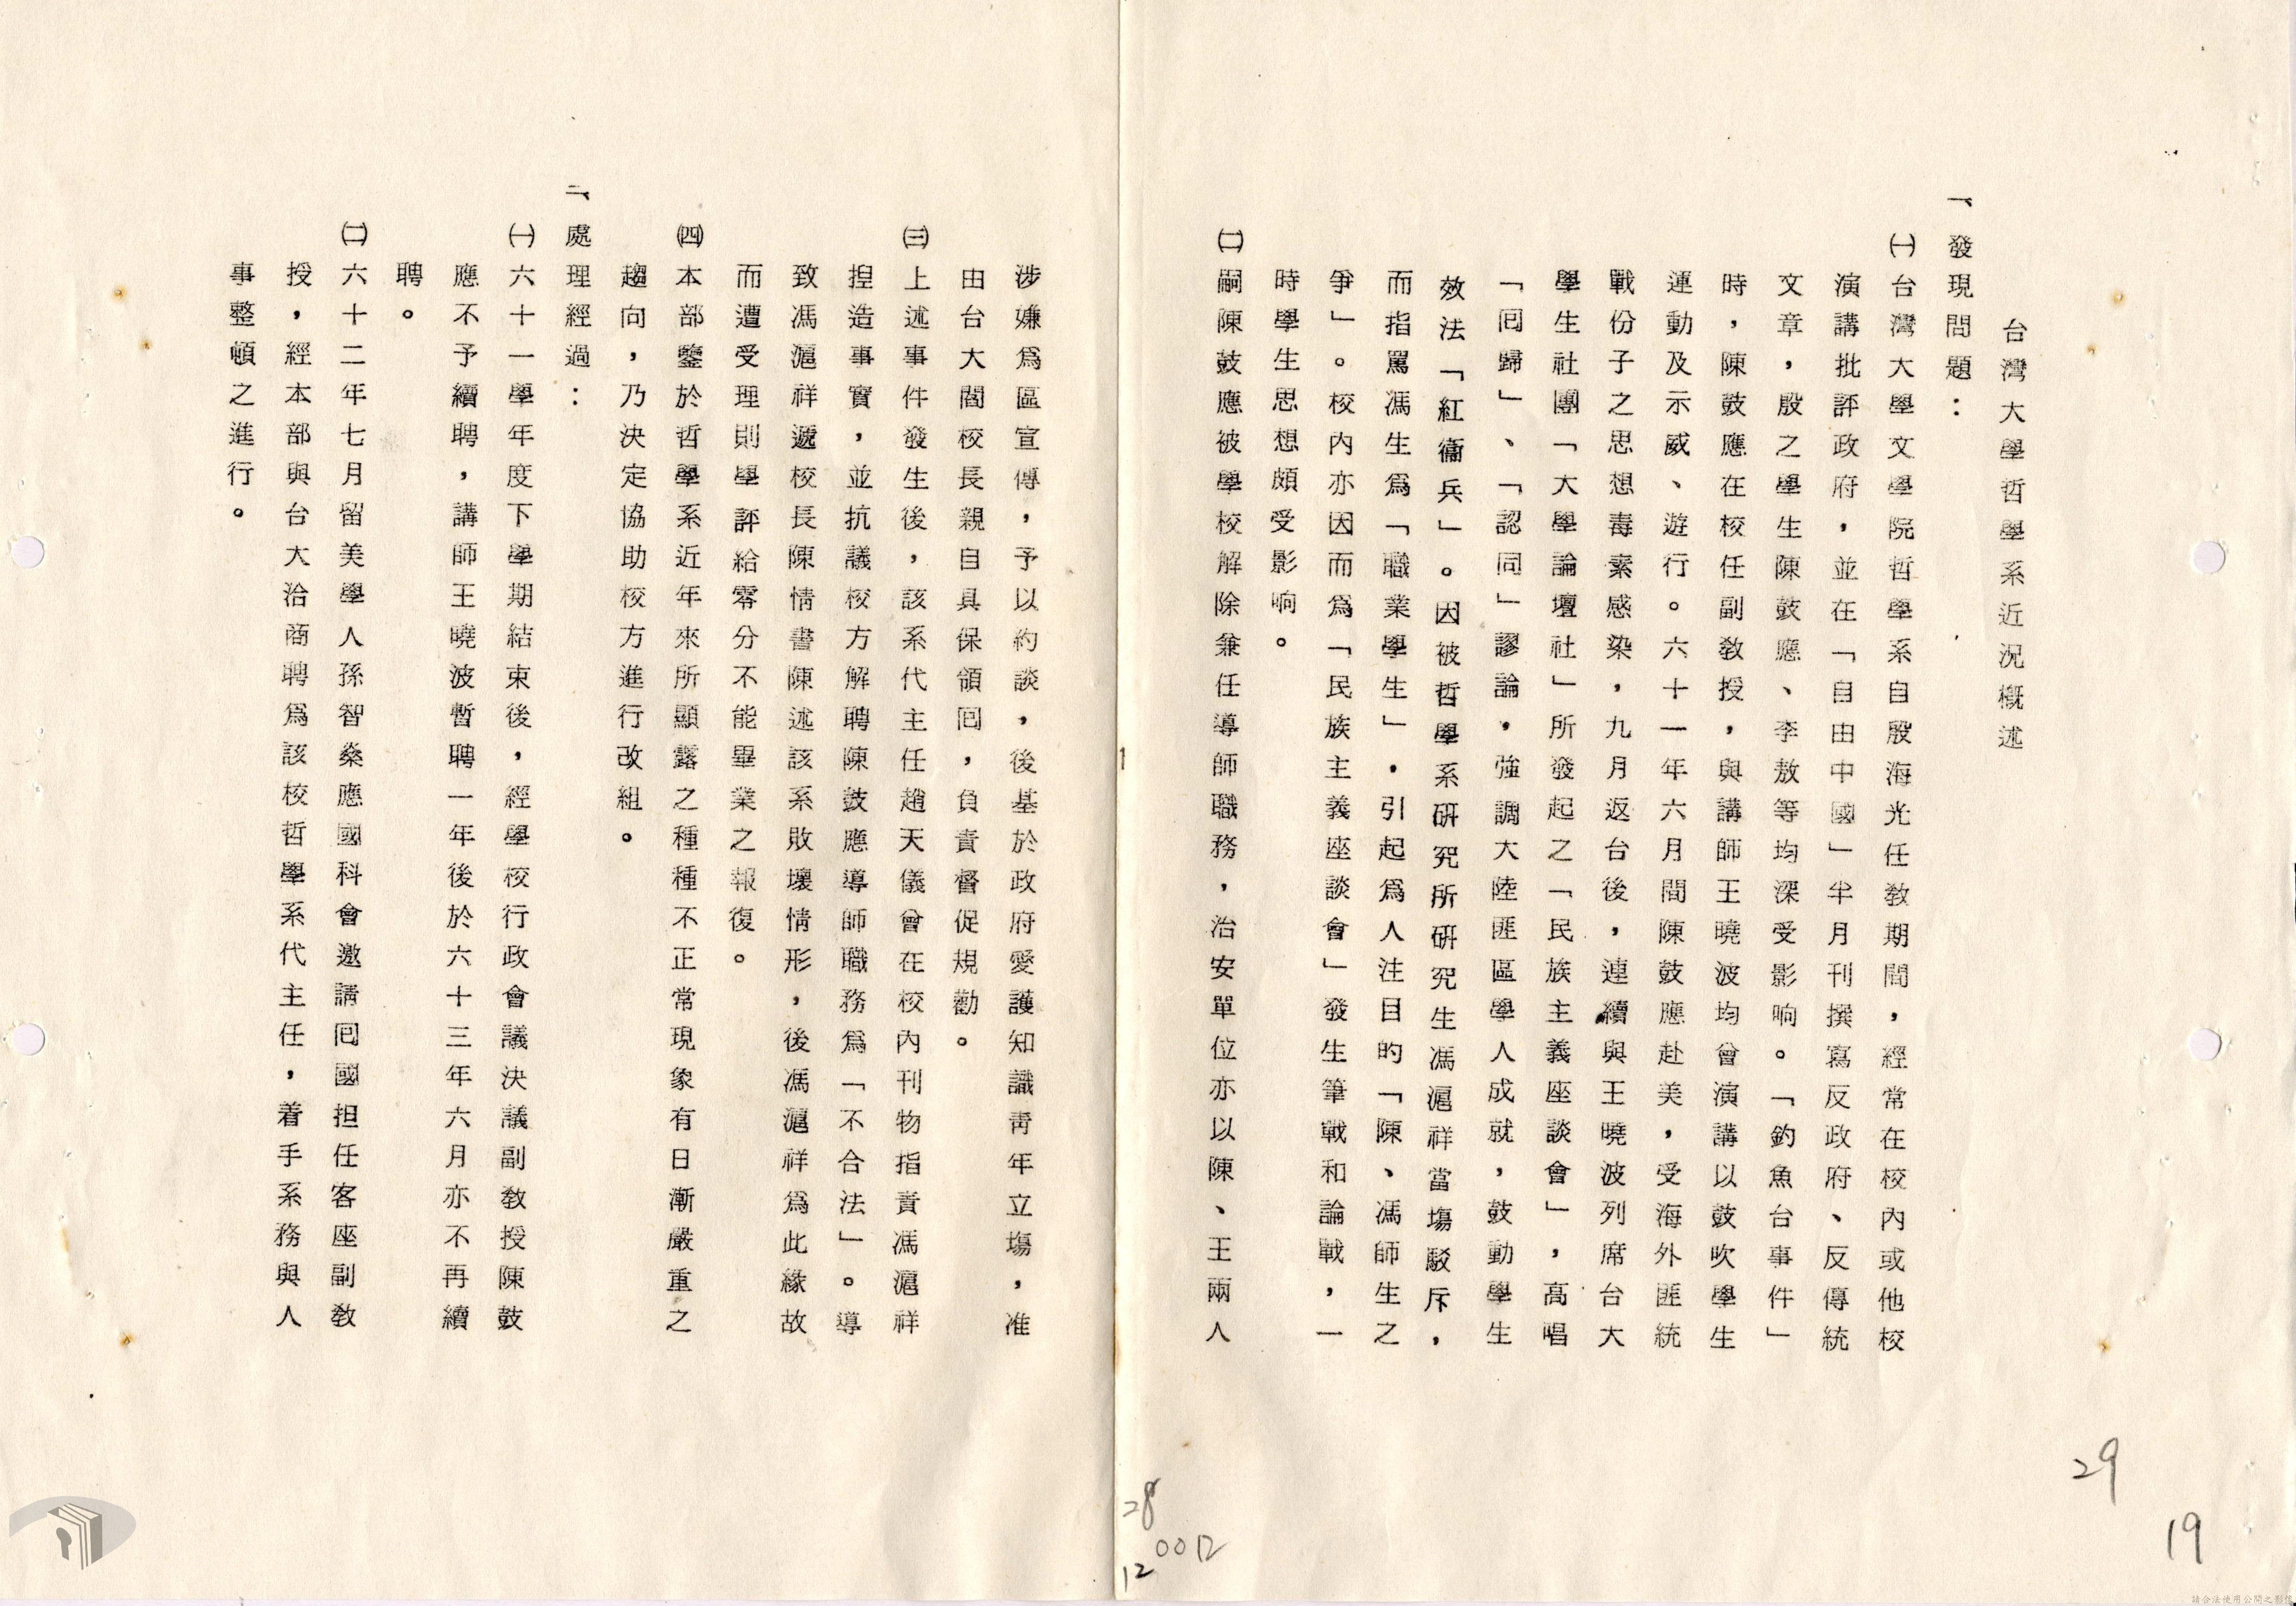 台灣大學哲學系近況概述
一、發現問題：
㈠台灣大學文學院哲學系自殷海光任教期間，經常在校內或他校
演講批評政府，並在「自由中國」半月刊撰寫反政府、反傳統
文章，殷之學生陳鼓應、李敖等均深受影响。「釣魚台事件」
時，陳鼓應在校任副教授，與講師王曉波均曾演講以鼓吹學生
運動及示威、遊行。六十一年六月間陳鼓應赴美，受海外匪統
戰份子之思想毒素感染，九月返台後，連續與王曉波列席台大
學生社團「大學論壇社」所發起之「民族主義座談會」，高唱
「回歸」、「認同」謬論，強調大陸匪區學人成就，鼓動學生
效法「紅衞兵」。因被哲學系研究所研究生馮滬祥當塲駁斥，
而指罵馮生爲「職業學生」，引起爲人注目的「陳、馮師生之
爭」。校內亦因而爲「民族主義座談會」發生筆戰和論戰，一
時學生思想頗受影响。
㈡嗣陳鼓應被學校解除兼任導師職務，治安單位亦以陳、王兩人
涉嫌爲匪宣傳，予以約談，後基於政府愛護知識青年立塲，准
由台大閻校長親自具保領回，負責督促規勸。
㈢上述事件發生後，該系代主任趙天儀曾在校內刊物指責馮滬祥
捏造事實，並抗議校方解聘陳鼓應導師職務爲「不合法」。導
致馮滬祥遞校長陳情書陳述該系敗壞情形，後馮滬祥爲此緣故
而遭受理則學評給零分不能畢業之報復。
㈣本部鑒於哲學系近年來所顯露之種種不正常現象有日漸嚴重之
趨向，乃決定協助校方進行改組。
二、處理經過：
㈠六十一學年度下學期結束後，經學校行政會議決議副教授陳鼓
應不予續聘，講師王曉波暫聘一年後於六十三年六月亦不再續
聘。
㈡六十二年七月留美學人孫智燊應國科會邀請回國担任客座副教
授，經本部與台大洽商聘爲該校哲學系代主任，着手系務與人
事整頓之進行。
29
19
28
0012
12
請合法使用公開之影像